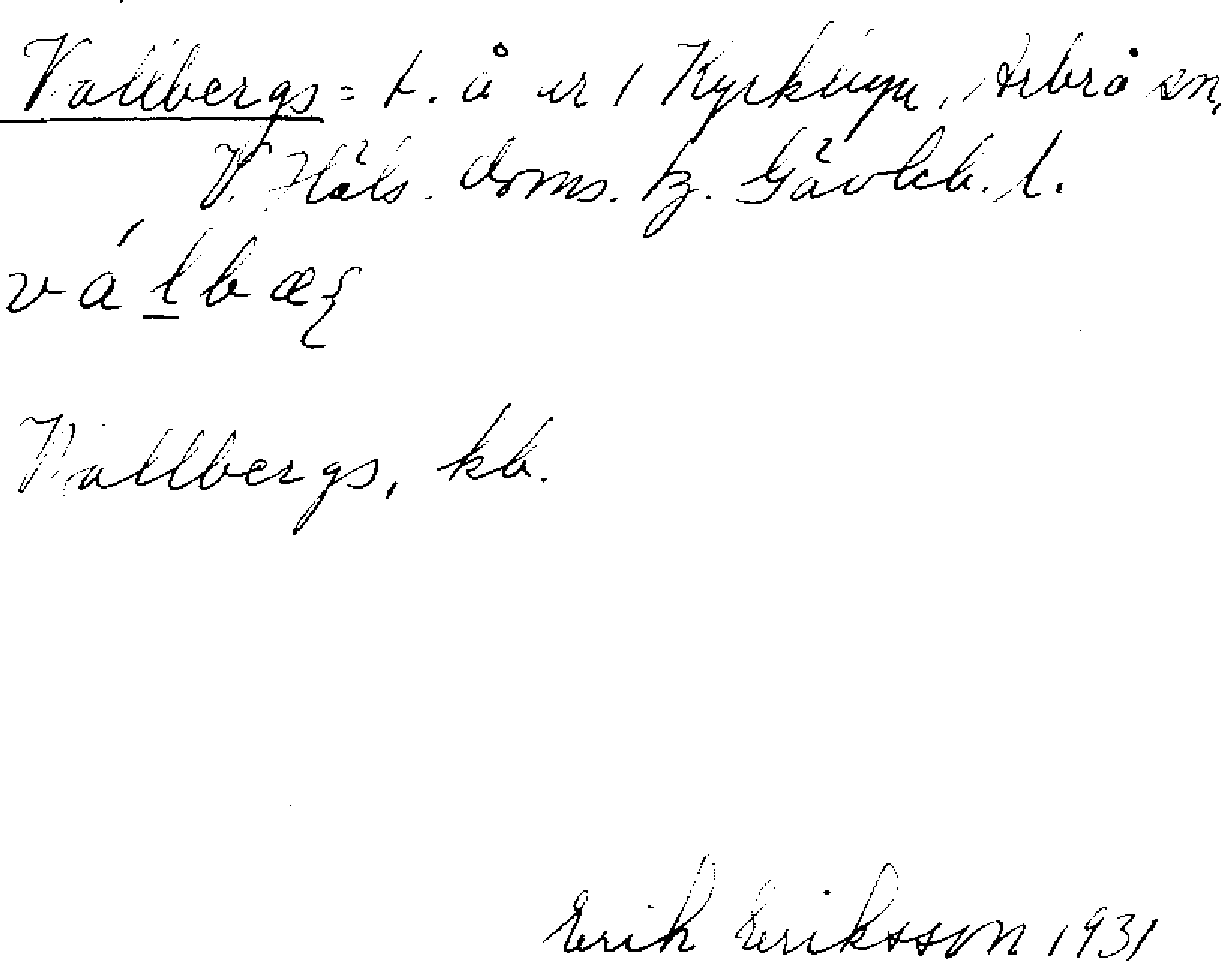 Vallbergs = t. å nr 1 Kyrkbyn, Arbrå sn,
V. Häls. doms. hz. Gävleb. l.
Vallbergs, kb.
Erik Eriksson 1931